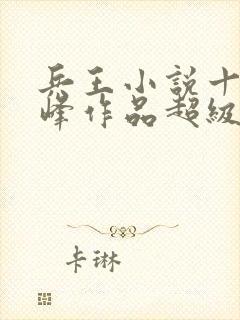 兵王小说十
峰作品超级
卡琳